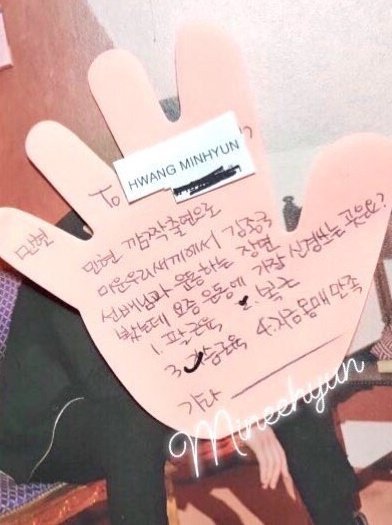 To HWANG MINHYUN
민현
민현 깜짝출연으로
미운우리새끼에서 김종국
선배님과 운동하는 장면
봤는데 요즘 운동에 가장 신경쓰는 곳은요?
1. 팔근육 2. 복근
3. 가슴근육 4. 지금몸매 만족
기타
Mineehyun